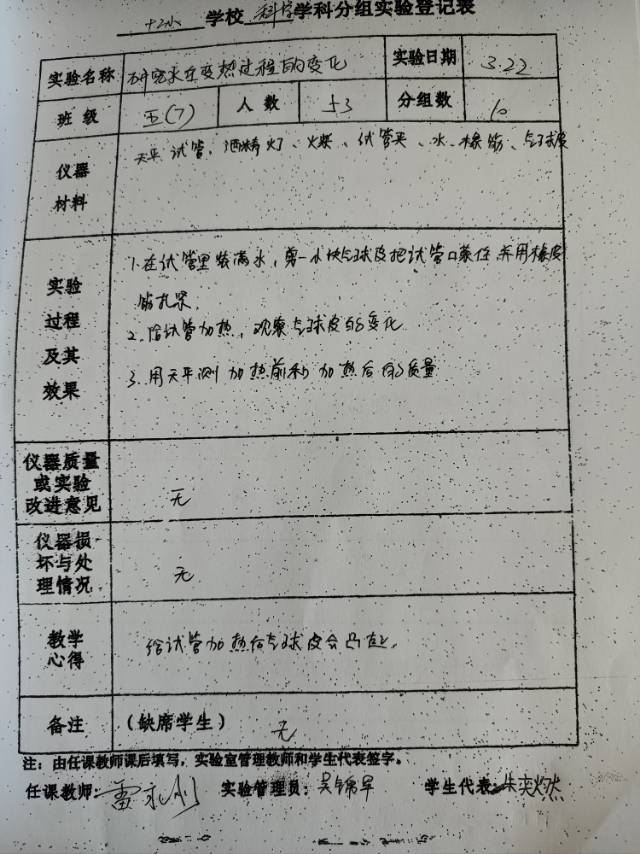 十二小 学校 科学 学科分组实验登记表
实验名称 研究水在变热过程的变化 实验日期 3.22
班 级 五(7) 人 数 53 分组数 10
仪器材料
天平 试管、酒精灯、火柴、试管夹、水、橡筋、气球皮
实验过程及其效果
1.在试管里装满水,剪一小块气球皮把试管口蒙住并用橡皮
筋扎紧.
2.给试管加热,观察气球皮的变化
3.用天平测加热前和加热后的质量
仪器质量
或实验
改进意见
无
仪器损
坏与处
理情况
无
教学
心得
给试管加热后气球皮会凸起。
备注 (缺席学生) 无
注:由任课教师课后填写,实验室管理教师和学生代表签字。
任课教师: 雷 实验管理员: 吴 学生代表: 朱奕